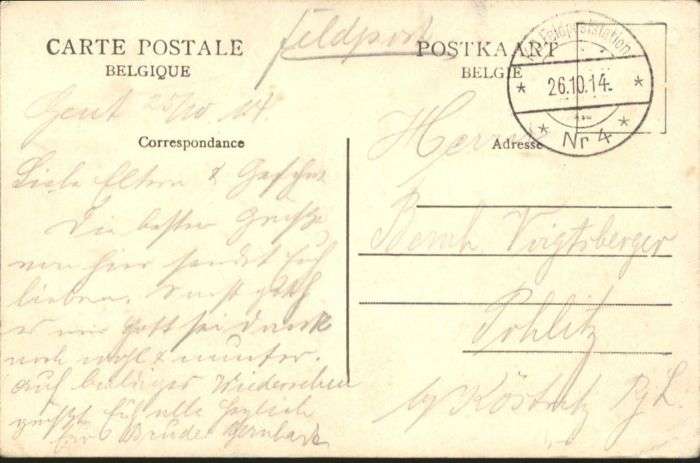 Feldpost
CARTE POSTALE
BELGIQUE
POSTKAART
BELGIË
Feldpoststation
* 26.10.14. *
* Nr 4 *
Gent 25/10 14.
Correspondance
Liebe Eltern & Geschw
Die besten Grüße
von hier sendet Euch
lieben. Sonst geht
es mir Gott sei dank
noch wohl & munter.
Auf baldiges Wiedersehen
grüßt Euch alle herzlich
Euer Bruder Bernhard
Adresse
Herrn
Bernh Voigtsberger
Pohlitz
b/ Köstritz R/j. L.